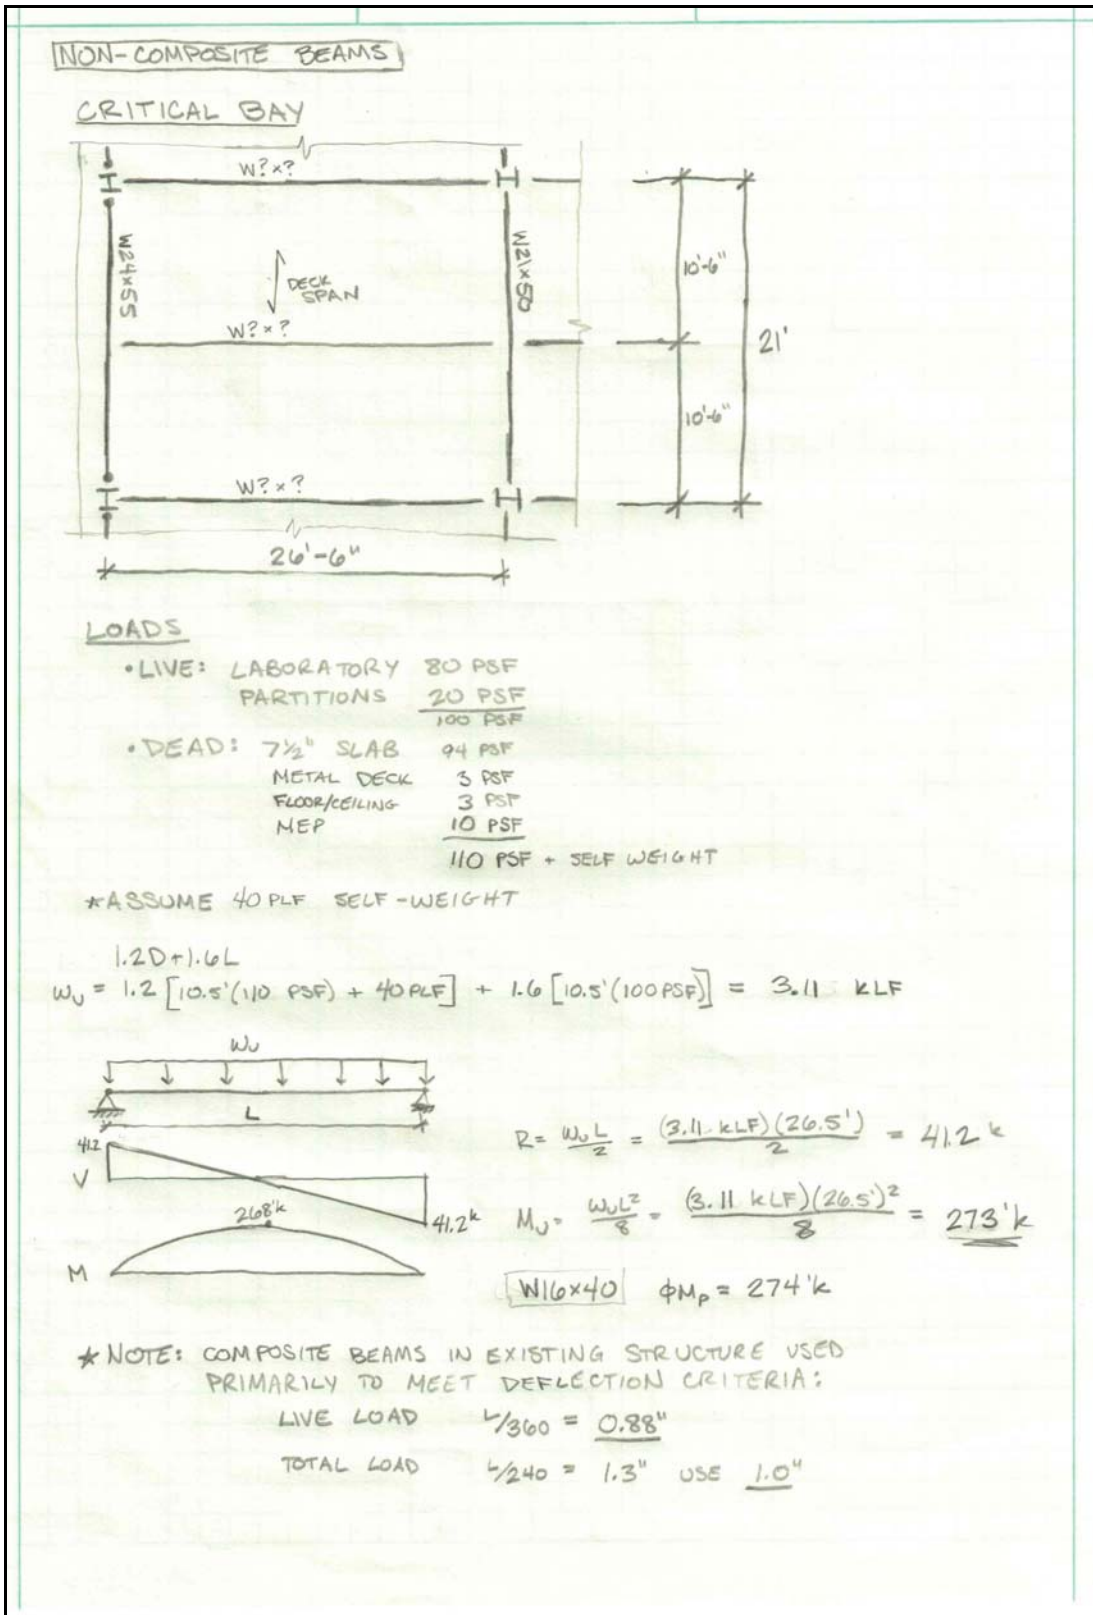 NON-COMPOSITE BEAMS
CRITICAL BAY
W?x?
W24x55
W21x50
DECK
SPAN
10'-6"
W?x?
21'
10'-6"
W?x?
26'-6"
LOADS
• LIVE: LABORATORY 80 PSF
PARTITIONS 20 PSF
100 PSF
• DEAD: 7½" SLAB 94 PSF
METAL DECK 3 PSF
FLOOR/CEILING 3 PSF
MEP 10 PSF
110 PSF + SELF WEIGHT
*ASSUME 40 PLF SELF-WEIGHT
1.2D+1.6L
wu = 1.2 [10.5'(110 PSF) + 40 PLF] + 1.6 [10.5'(100 PSF)] = 3.11 KLF
wu
L
41.2
V
R = wuL/2 = (3.11 KLF)(26.5')/2 = 41.2 k
268'k
41.2k
Mu = wuL²/8 = (3.11 KLF)(26.5')²/8 = 273'k
M
W16x40 φMp = 274'k
*NOTE: COMPOSITE BEAMS IN EXISTING STRUCTURE USED
PRIMARILY TO MEET DEFLECTION CRITERIA:
LIVE LOAD L/360 = 0.88"
TOTAL LOAD L/240 = 1.3" USE 1.0"